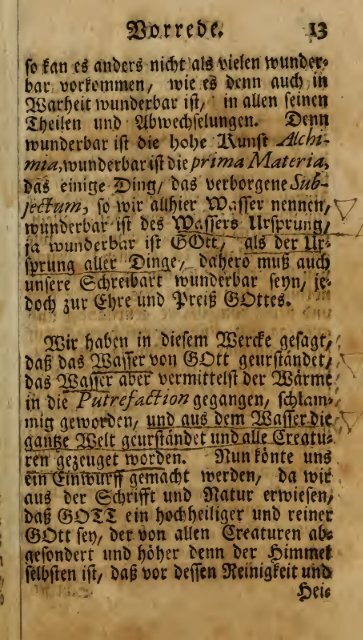 Vorrede. 13
so kan es anders nicht als vielen wunder-
bar vorkommen, wie es denn auch in
Warheit wunderbar ist, in allen seinen
Theilen und Abwechselungen. Denn
wunderbar ist die hohe Kunst Alchi-
mia, wunderbar ist die prima Materia,
das einige Ding, das verborgene Sub-
jectum, so wir allhier Wasser nennen,
wunderbar ist des Wassers Ursprung,
ja wunderbar ist GOtt, als der Ur-
sprung aller Dinge, dahero muß auch
unsere Schreibart wunderbar seyn, je-
doch zur Ehre und Preiß GOttes.
Wir haben in diesem Wercke gesagt,
daß das Wasser von GOtt geurständet,
das Wasser aber vermittelst der Wärme
in die Putrefaction gegangen, schlam-
mig geworden, und aus dem Wasser die
gantze Welt geurständet und alle Creatu-
ren gezeuget worden. Nun könte uns
ein Einwurff gemacht werden, da wir
aus der Schrifft und Natur erwiesen,
daß GOTT ein hochheiliger und reiner
GOtt sey, der von allen Creaturen ab-
gesondert und höher denn der Himmel
selbsten ist, daß vor dessen Reinigkeit und
Hei-